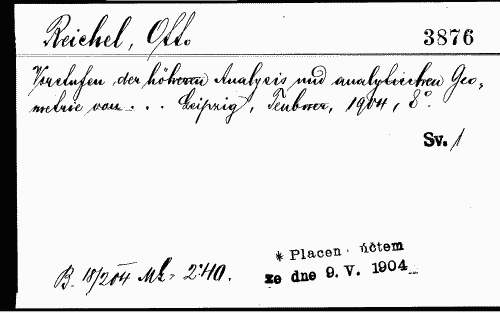 Reichel, Otto
3876
Vorstufen der höheren Analysis und analytischen Geo-
metrie von . . . Leipzig, Teubner, 1904, 8°.
Sv. 1
B. 18/204 Mk. 2·40.
* Placen účtem
ze dne 9. V. 1904